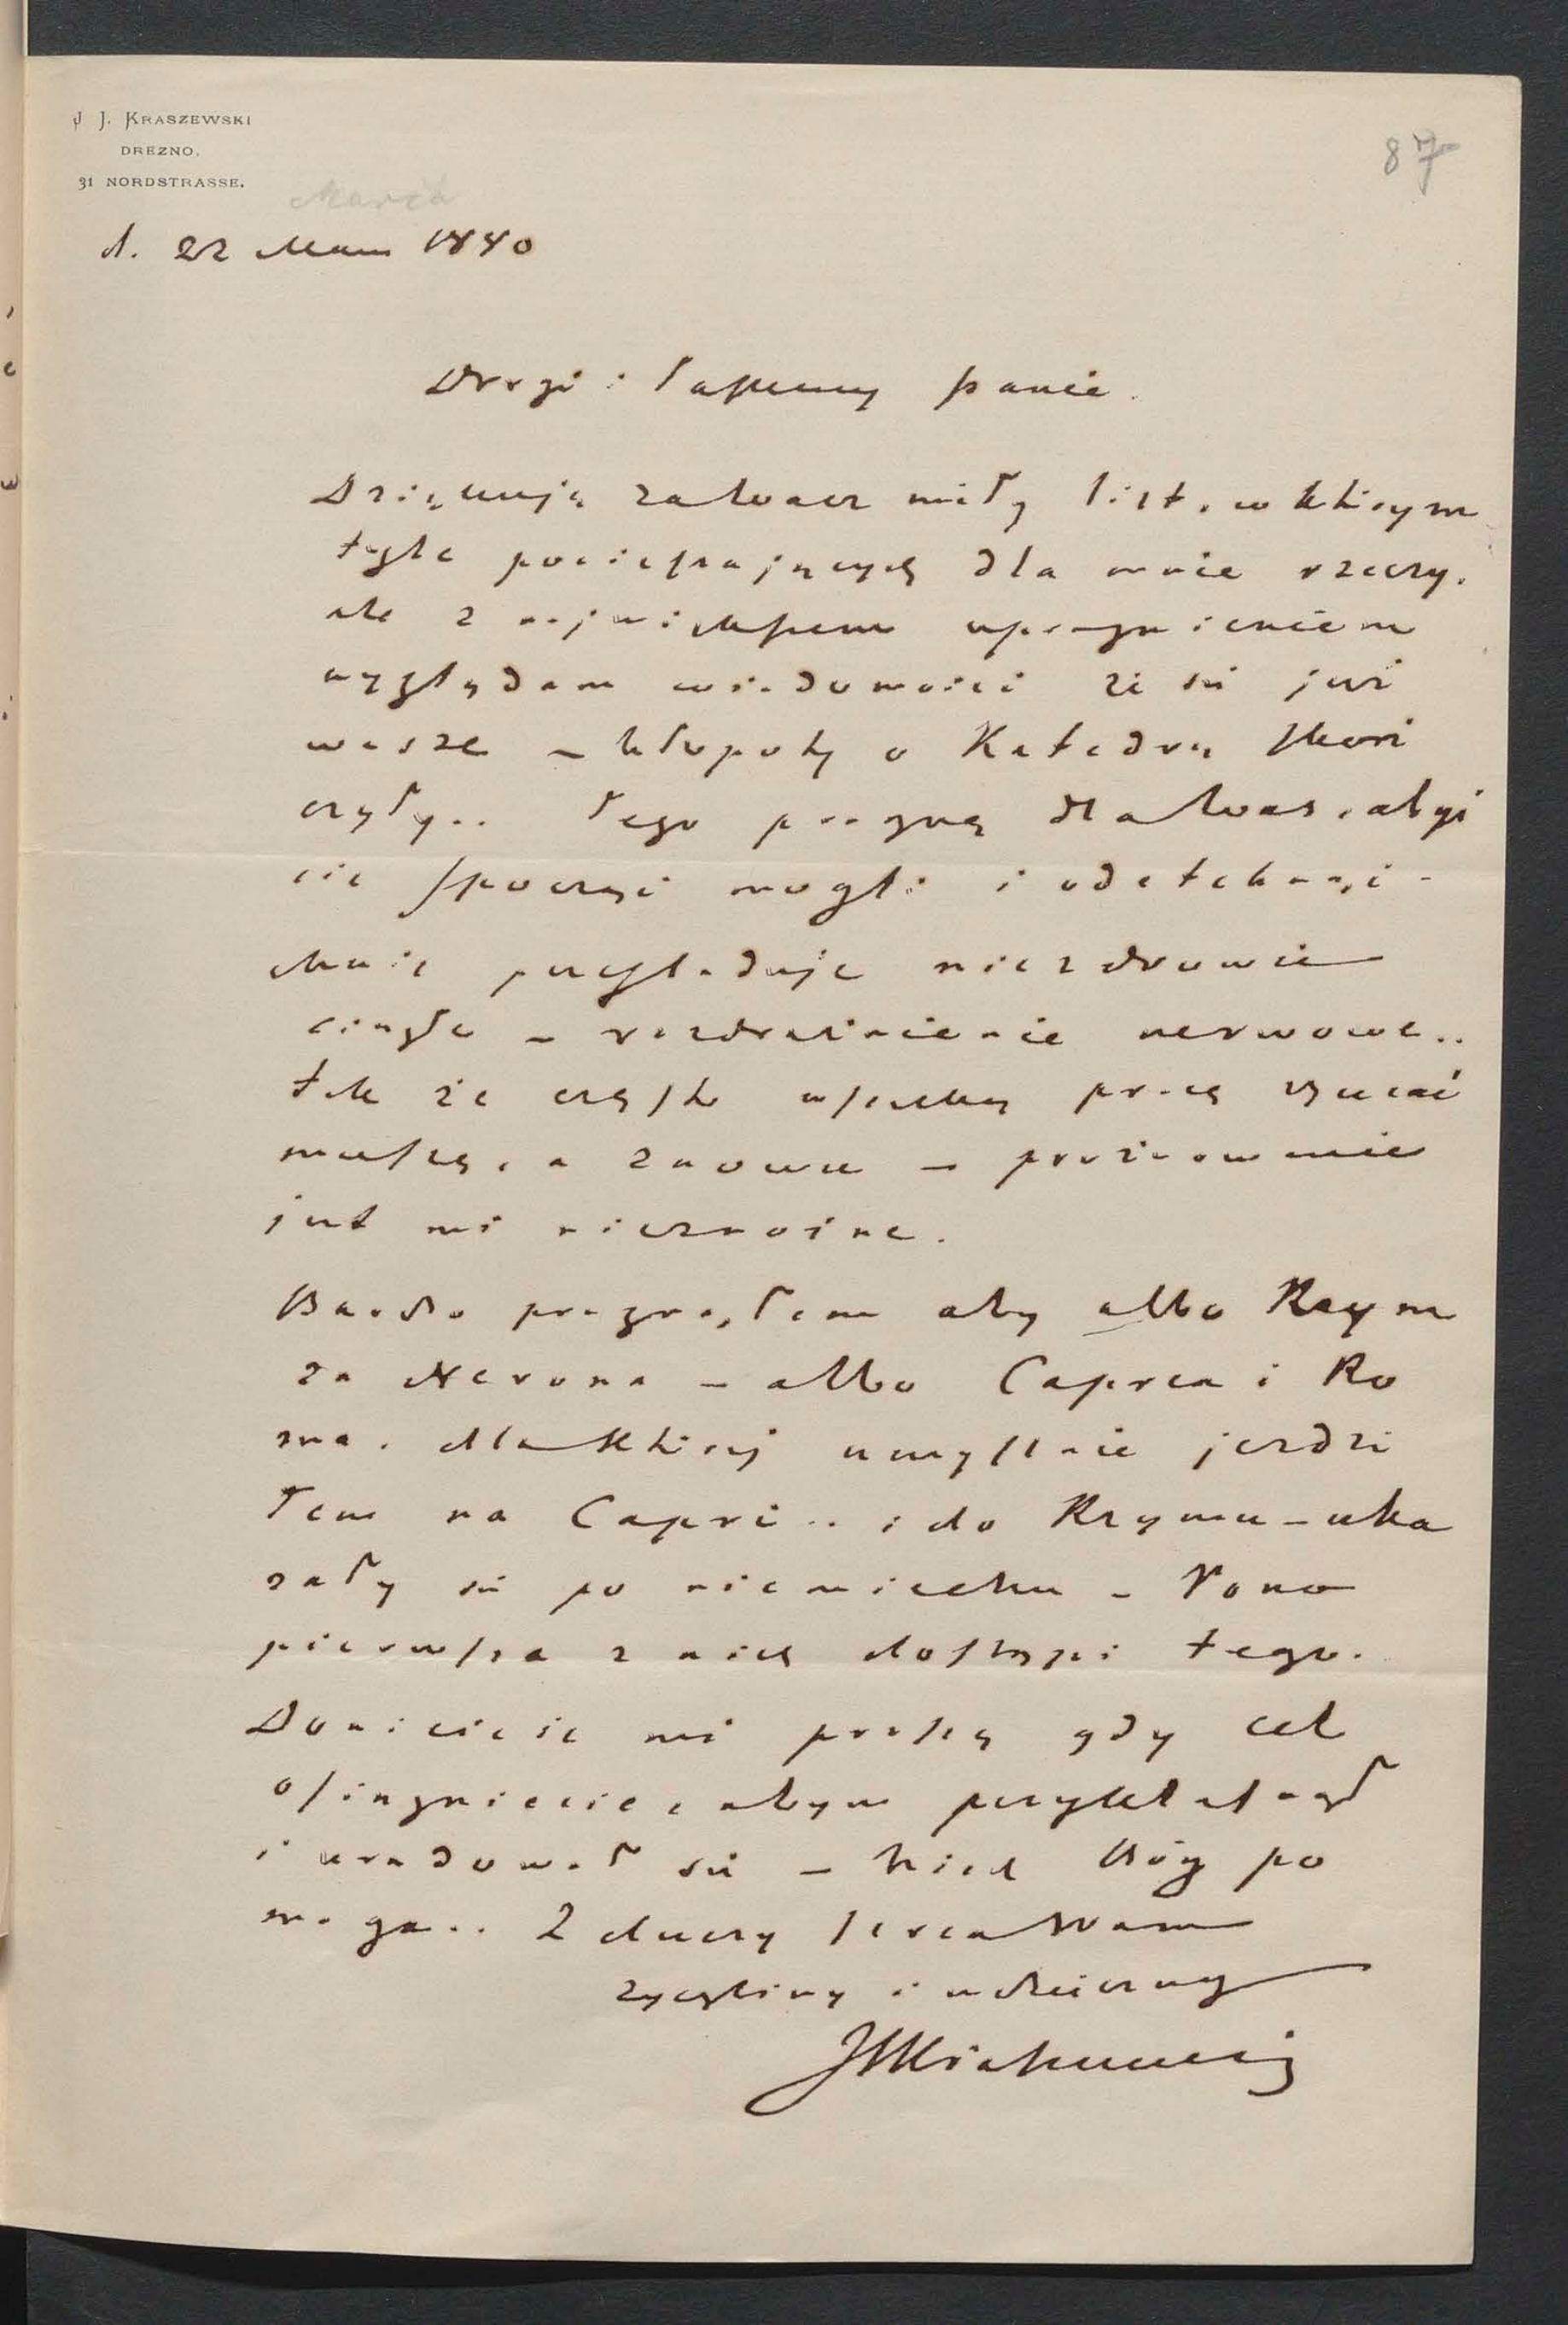 J J. KRASZEWSKI
DREZNO.
31 NORDSTRASSE.
87
Marca
d. 22 Marca 1880
Drogi i łaskawy panie.
Dziękuję za Wasz miły list, w którym
tyle pocieszających dla mnie rzeczy.
ale z największem upragnieniem
wyglądam wiadomości że się już
wasze – kłopoty o Katedrę skoń
czyły.. Tego pragnę dla Was, abyś
cie spocząć mogli i odetchnąć –
Mnie prześladuje niezdrowie
ciągle – rozdraźnienie nerwowe..
tak że często wszelką pracę rzucać
muszę, a znowu – próżnowanie
jest mi nieznośne.
Bardzo pragnąłem aby albo Rzym
za Nerona – albo Caprea i Ro
ma. dla której umyślnie jeździ
łem na Capri .. i do Rzymu – uka
zały się po niemiecku –
pierwsza z nich dostąpi tego.
Donieście mi proszę gdy cel
osiągniecie, abym przyklasnął
i uradował się – Niech Bóg po
maga .. Z duszy serca Wam
życzliwy i wdzięczny
JIKraszewski